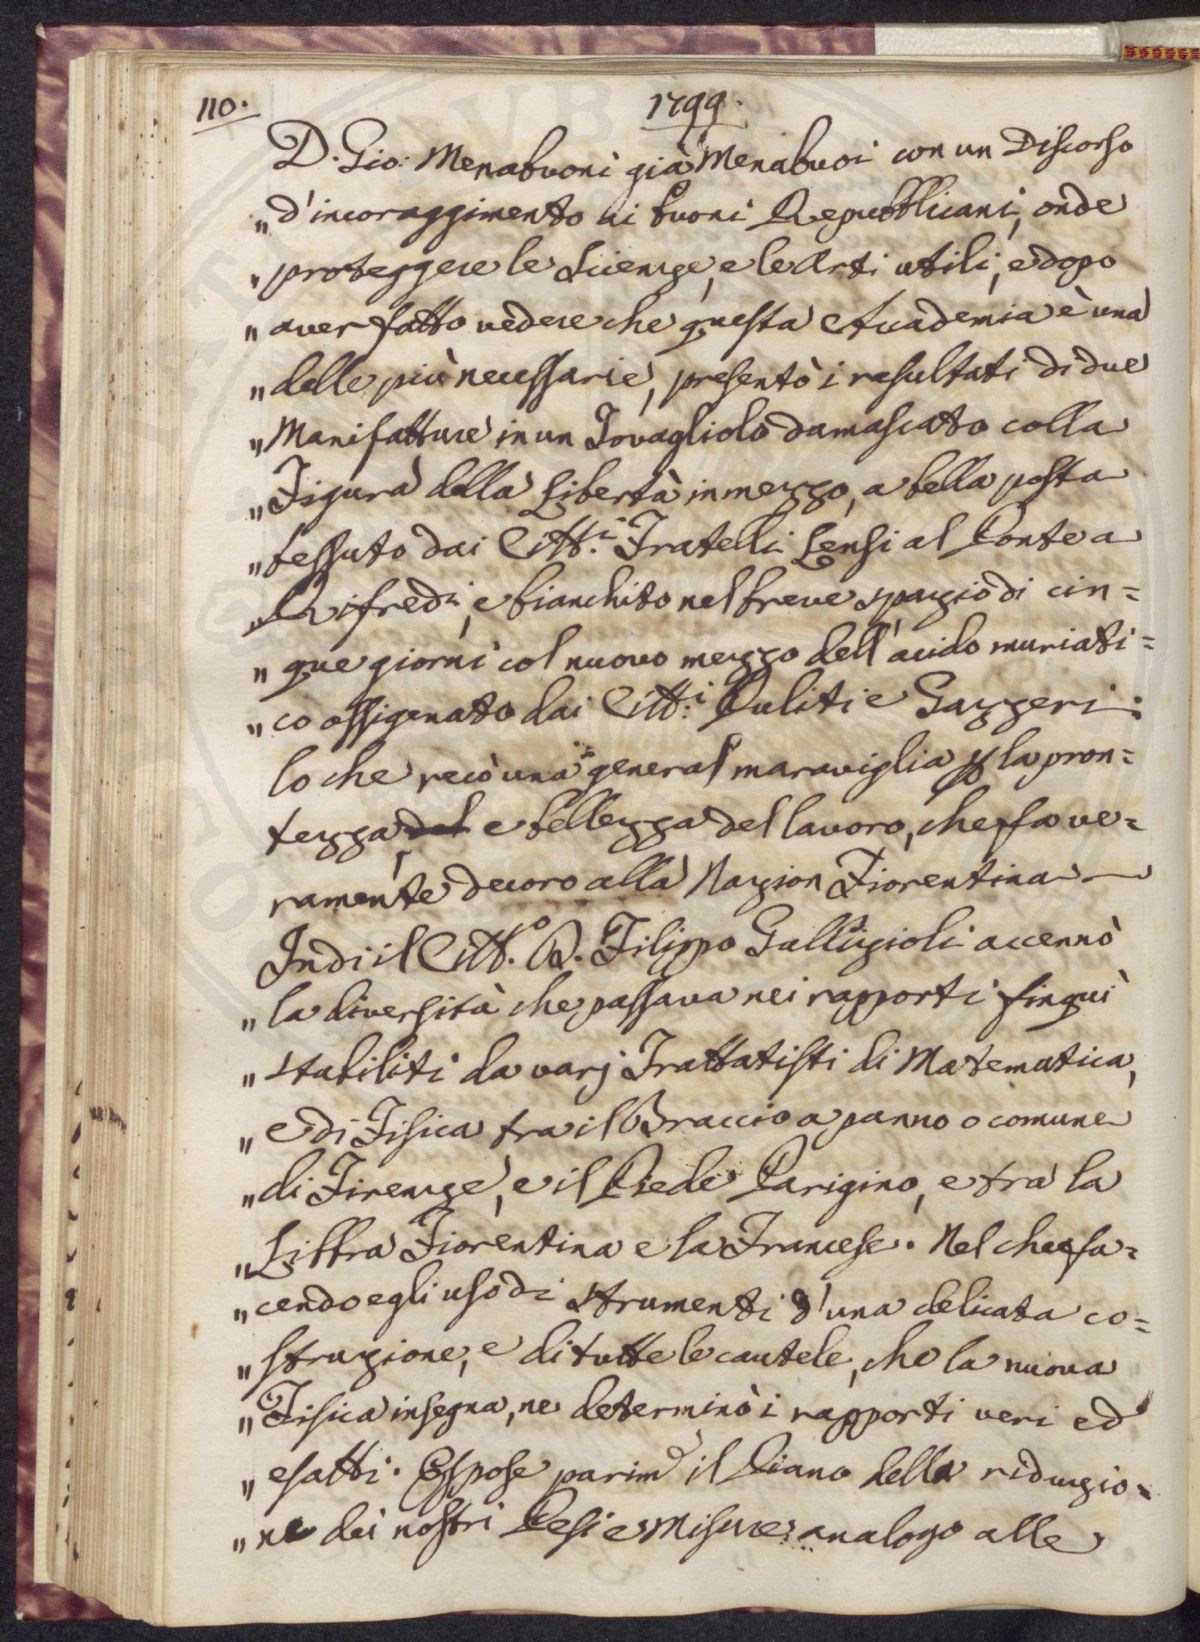 110.
1799.
D. Gio: Menabuoni già Menabuoi con un Discorso
„ d'incoraggimento ai buoni Repubblicani, onde
„ proteggere le Scienze, e le Arti utili, e dopo
„ aver fatto vedere che questa Accademia è una
„ delle più necessarie, presentò i resultati di due
„ Manifatture in un Tovagliolo damascato colla
„ Figura della Libertà in mezzo, a bella posta
„ tessuto dai Citt.i Fratelli Lensi al Ponte a
„ Rifredi, e bianchito nel breve spazio di cin=
„ que giorni col nuovo mezzo dell'acido muriati=
„ co ossigenato dai Citt.i Puliti e Gazzeri:
lo che recò una general maraviglia p la pron=
tezza, del e bellezza del lavoro, che fa ve=
ramente decoro alla Nazion Fiorentina
Indi il Citt.o D. Filippo Gallizioli accennò
„ la diversità che passava nei rapporti finquì
„ stabiliti da varj Trattatisti di Matematica,
„ e di Fisica tra il Braccio a panno o comune
„ di Firenze, e il Piede Parigino, e tra la
„ Libbra Fiorentina e la Francese. Nel che fa=
„ cendo egli uso di strumenti d'una delicata co=
„ struzione, e di tutte le cautele, che la nuova
„ Fisica insegna, ne determinò i rapporti veri ed
„ esatti. Espose parim.e il Piano della riduzio=
„ ne dei nostri Pesi e Misure: analogo alle